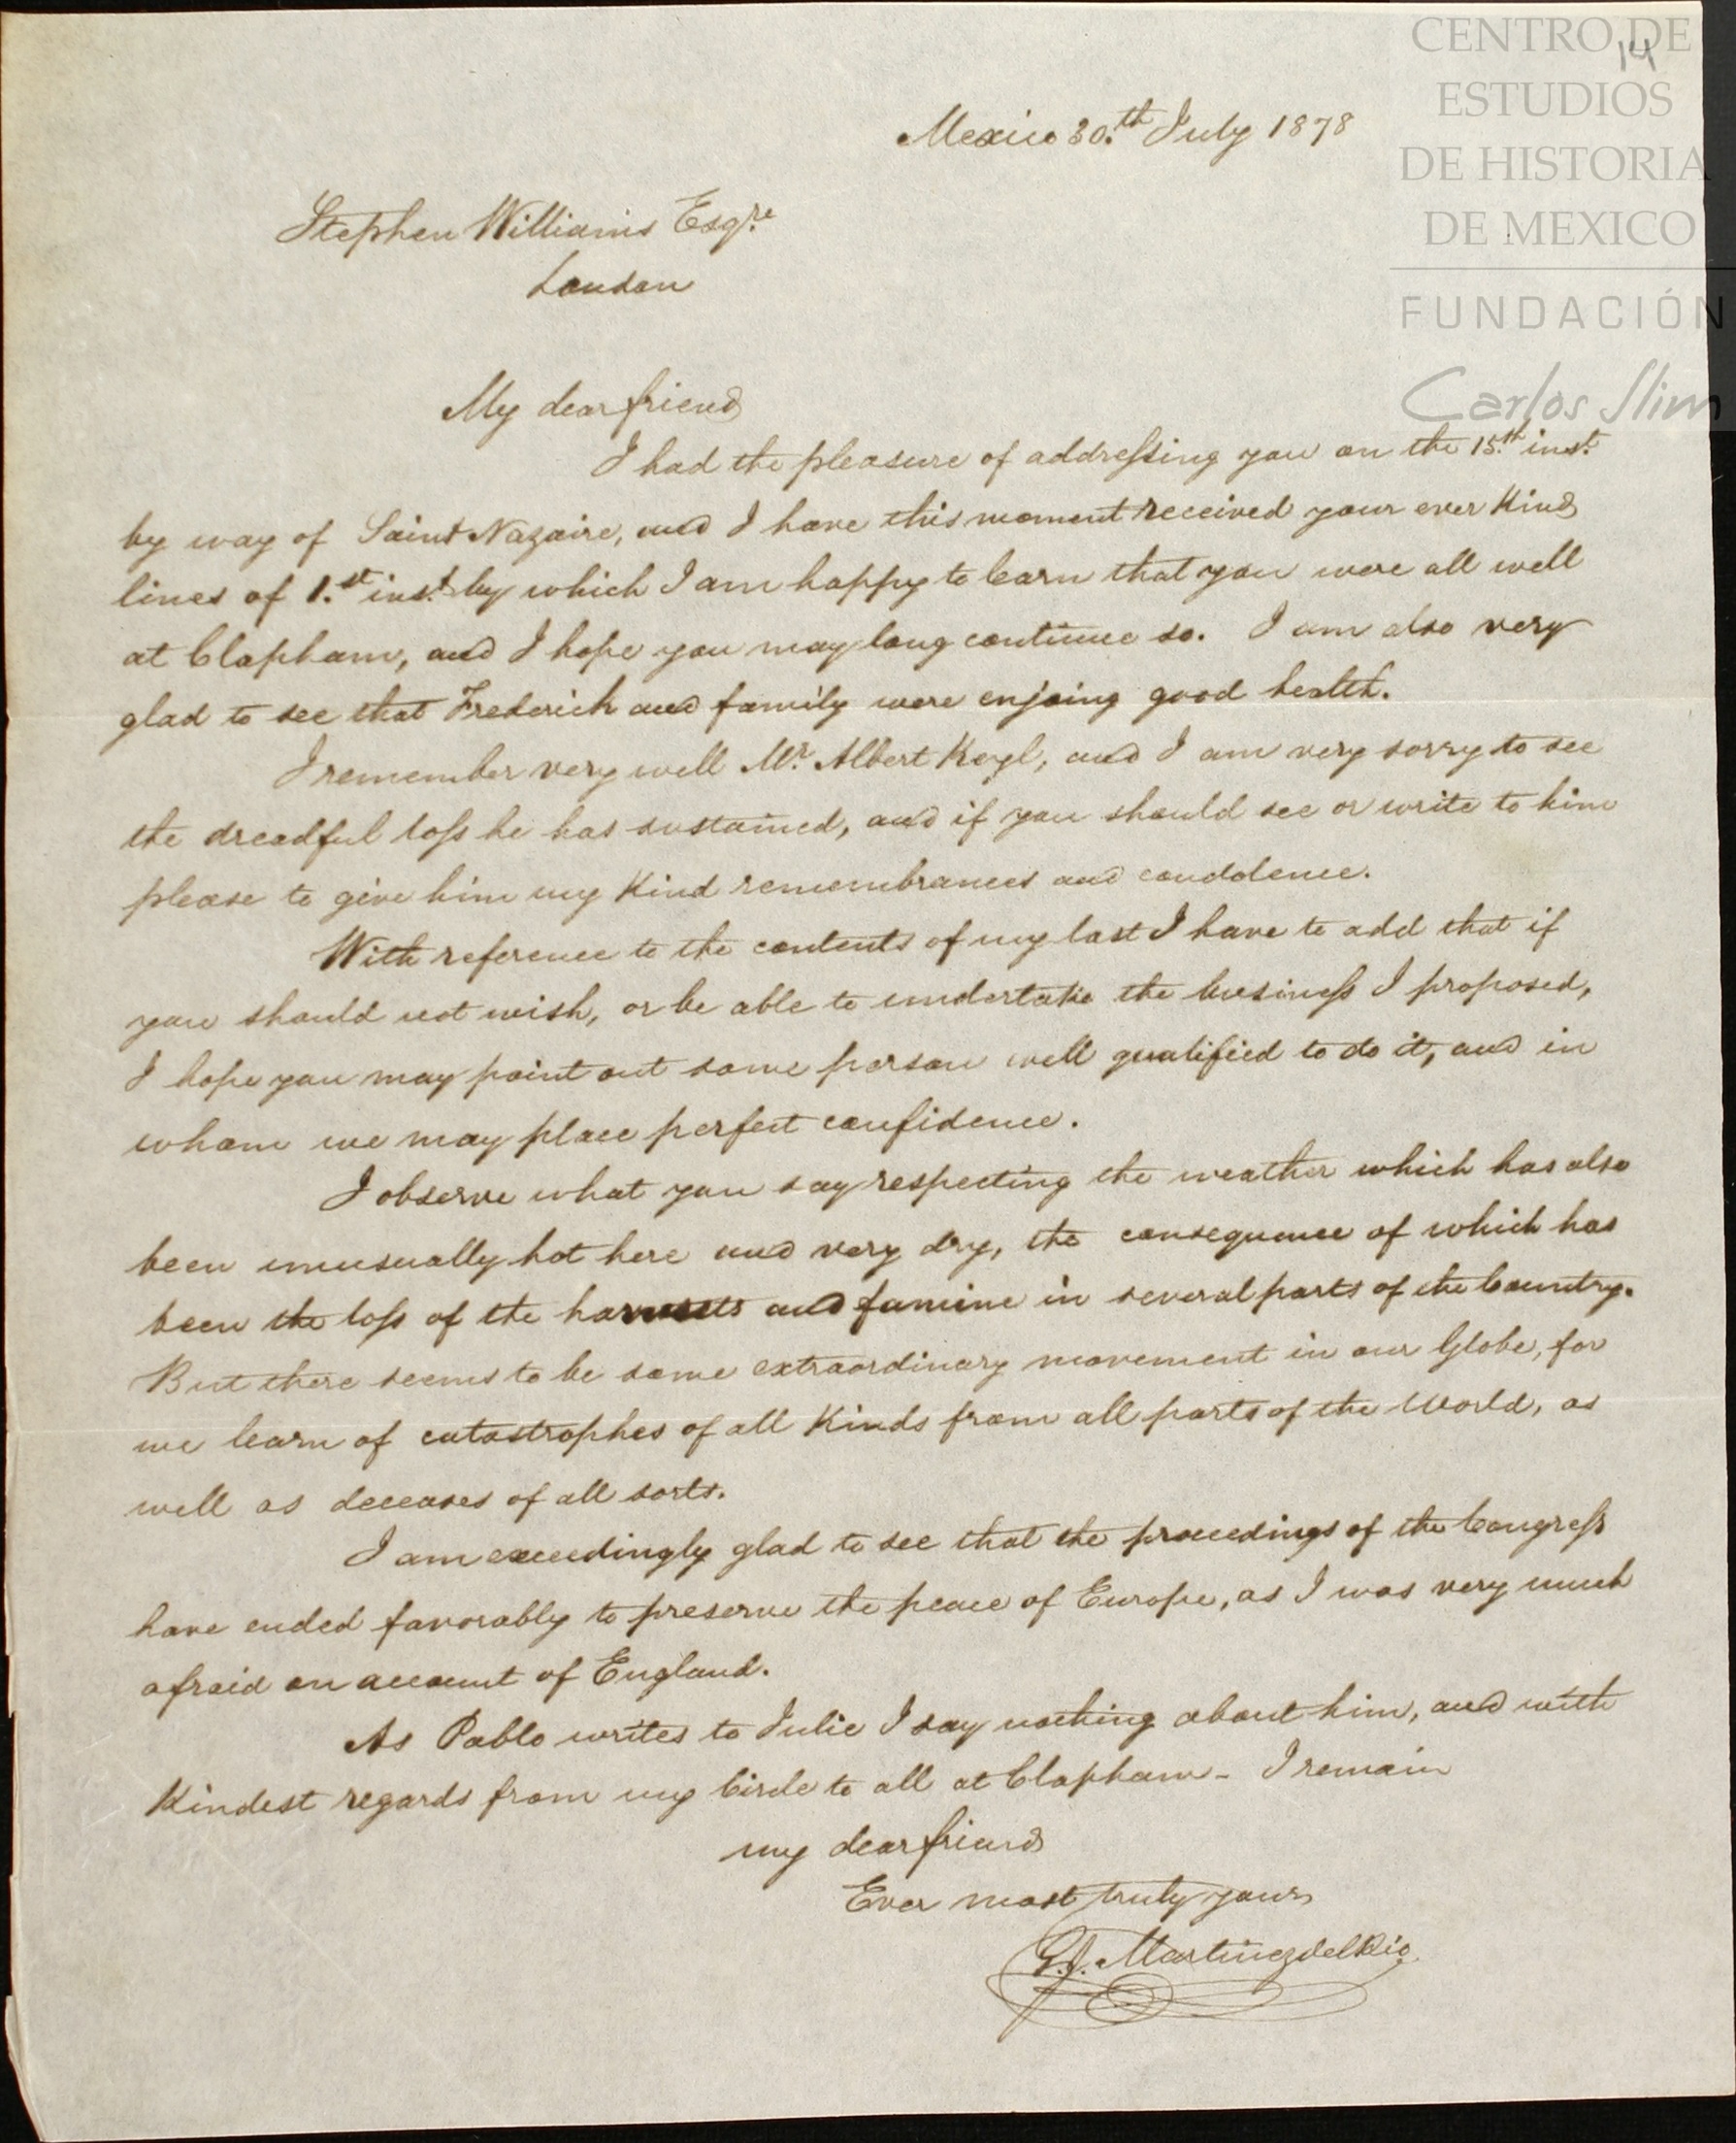 CENTRO DE
ESTUDIOS
DE HISTORIA
DE MEXICO
FUNDACIÓN
Carlos Slim
14
Mexico 30.th July 1878
Stephen Williams Esqre.
London
My dear friend
I had the pleasure of addressing you on the 15.th inst.
by way of Saint Nazaire, and I have this moment received your ever Kind
lines of 1.st inst. by which I am happy to learn that you were all well
at Clapham, and I hope you may long continue so. I am also very
glad to see that Frederich and family were enjoing good health.
I remember very well Mr. Albert Kegl, and I am very sorry to see
the dreadful loss he has sustained, and if you should see or write to him
please to give him my Kind remembrances and condolence.
With reference to the contents of my last I have to add that if
you should not wish, or be able to undertake the business I proposed,
I hope you may point out some person well qualified to do it, and in
whom we may place perfect confidence.
I observe what you say respecting the weather which has also
been unusually hot here and very dry, the consequence of which has
been the loss of the harvests and famine in several parts of the Country.
But there seems to be some extraordinary movement in our Globe, for
we learn of catastrophes of all Kinds from all parts of the World, as
well as deceases of all sorts.
I am exceedingly glad to see that the proceedings of the Congress
have ended favorably to preserve the peace of Europe, as I was very much
afraid on account of England.
As Pablo writes to Julie I say nothing about him, and with
Kindest regards from my Circle to all at Clapham - I remain
my dear friend
Ever most truly yours
G. J. Martinezdelrio